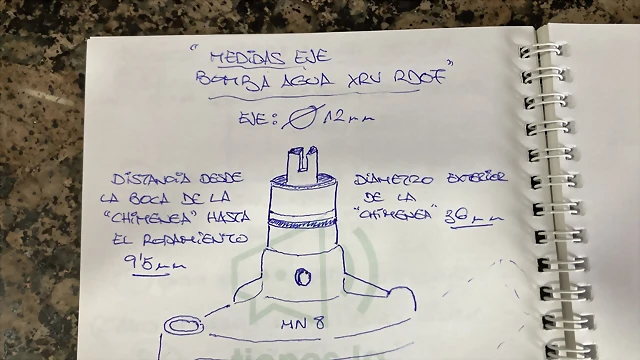 "MEDIDAS EJE
BOMBA AGUA XRV RD07"
EJE: Ø 12mm
DISTANCIA DESDE
LA BOCA DE LA
"CHIMENEA" HASTA
EL RODAMIENTO
9'5mm
DIAMETRO EXTERIOR
DE LA
"CHIMENEA" 36mm
MN 8